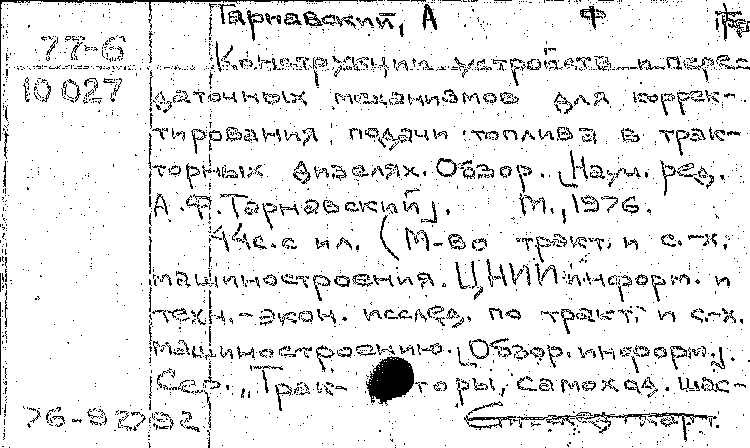 Тарнавский, А Ф
77-6
Конструкции устройств и пере-
10 027
даточных механизмов для коррек-
тирования подачи топлива в трак-
торных дизелях. Обзор. [Науч. ред.
А.Ф. Тарнавский]. М., 1976.
44с. с ил. (М-во тракт. и с.-х.
машиностроения. ЦНИИ информ. и
техн.-экон. исслед. по тракт. и с-х.
машиностроению. [Обзор. информ.].
Сер. „Трак- торы, самоход. шас-
76-92792